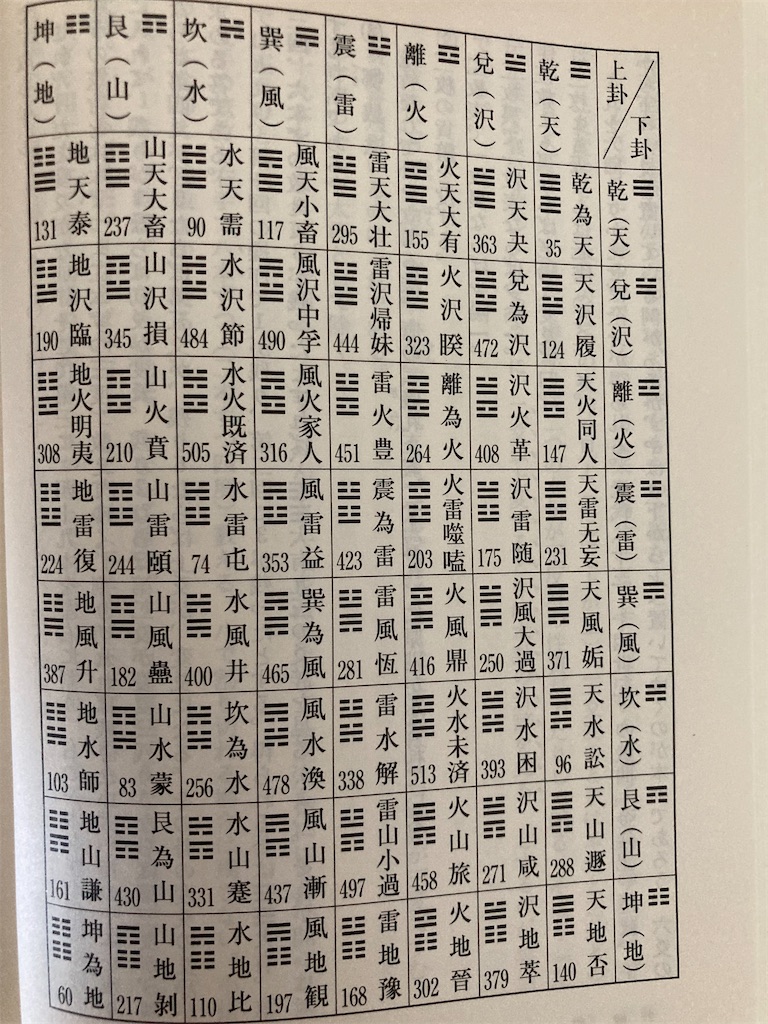 上卦／下卦
乾（天）
兌（沢）
離（火）
震（雷）
巽（風）
坎（水）
艮（山）
坤（地）
乾（天）
乾為天 35
沢天夬 363
火天大有 155
雷天大壮 295
風天小畜 117
水天需 90
山天大畜 237
地天泰 131
兌（沢）
天沢履 124
兌為沢 472
火沢睽 323
雷沢帰妹 444
風沢中孚 490
水沢節 484
山沢損 345
地沢臨 190
離（火）
天火同人 147
沢火革 408
離為火 264
雷火豊 451
風火家人 316
水火既済 505
山火賁 210
地火明夷 308
震（雷）
天雷无妄 231
沢雷随 175
火雷噬嗑 203
震為雷 423
風雷益 353
水雷屯 74
山雷頤 244
地雷復 224
巽（風）
天風姤 371
沢風大過 250
火風鼎 416
雷風恆 281
巽為風 465
水風井 400
山風蠱 182
地風升 387
坎（水）
天水訟 96
沢水困 393
火水未済 513
雷水解 338
風水渙 478
坎為水 256
山水蒙 83
地水師 103
艮（山）
天山遯 288
沢山咸 271
火山旅 458
雷山小過 497
風山漸 437
水山蹇 331
艮為山 430
地山謙 161
坤（地）
天地否 140
沢地萃 379
火地晉 302
雷地豫 168
風地観 197
水地比 110
山地剝 217
坤為地 60